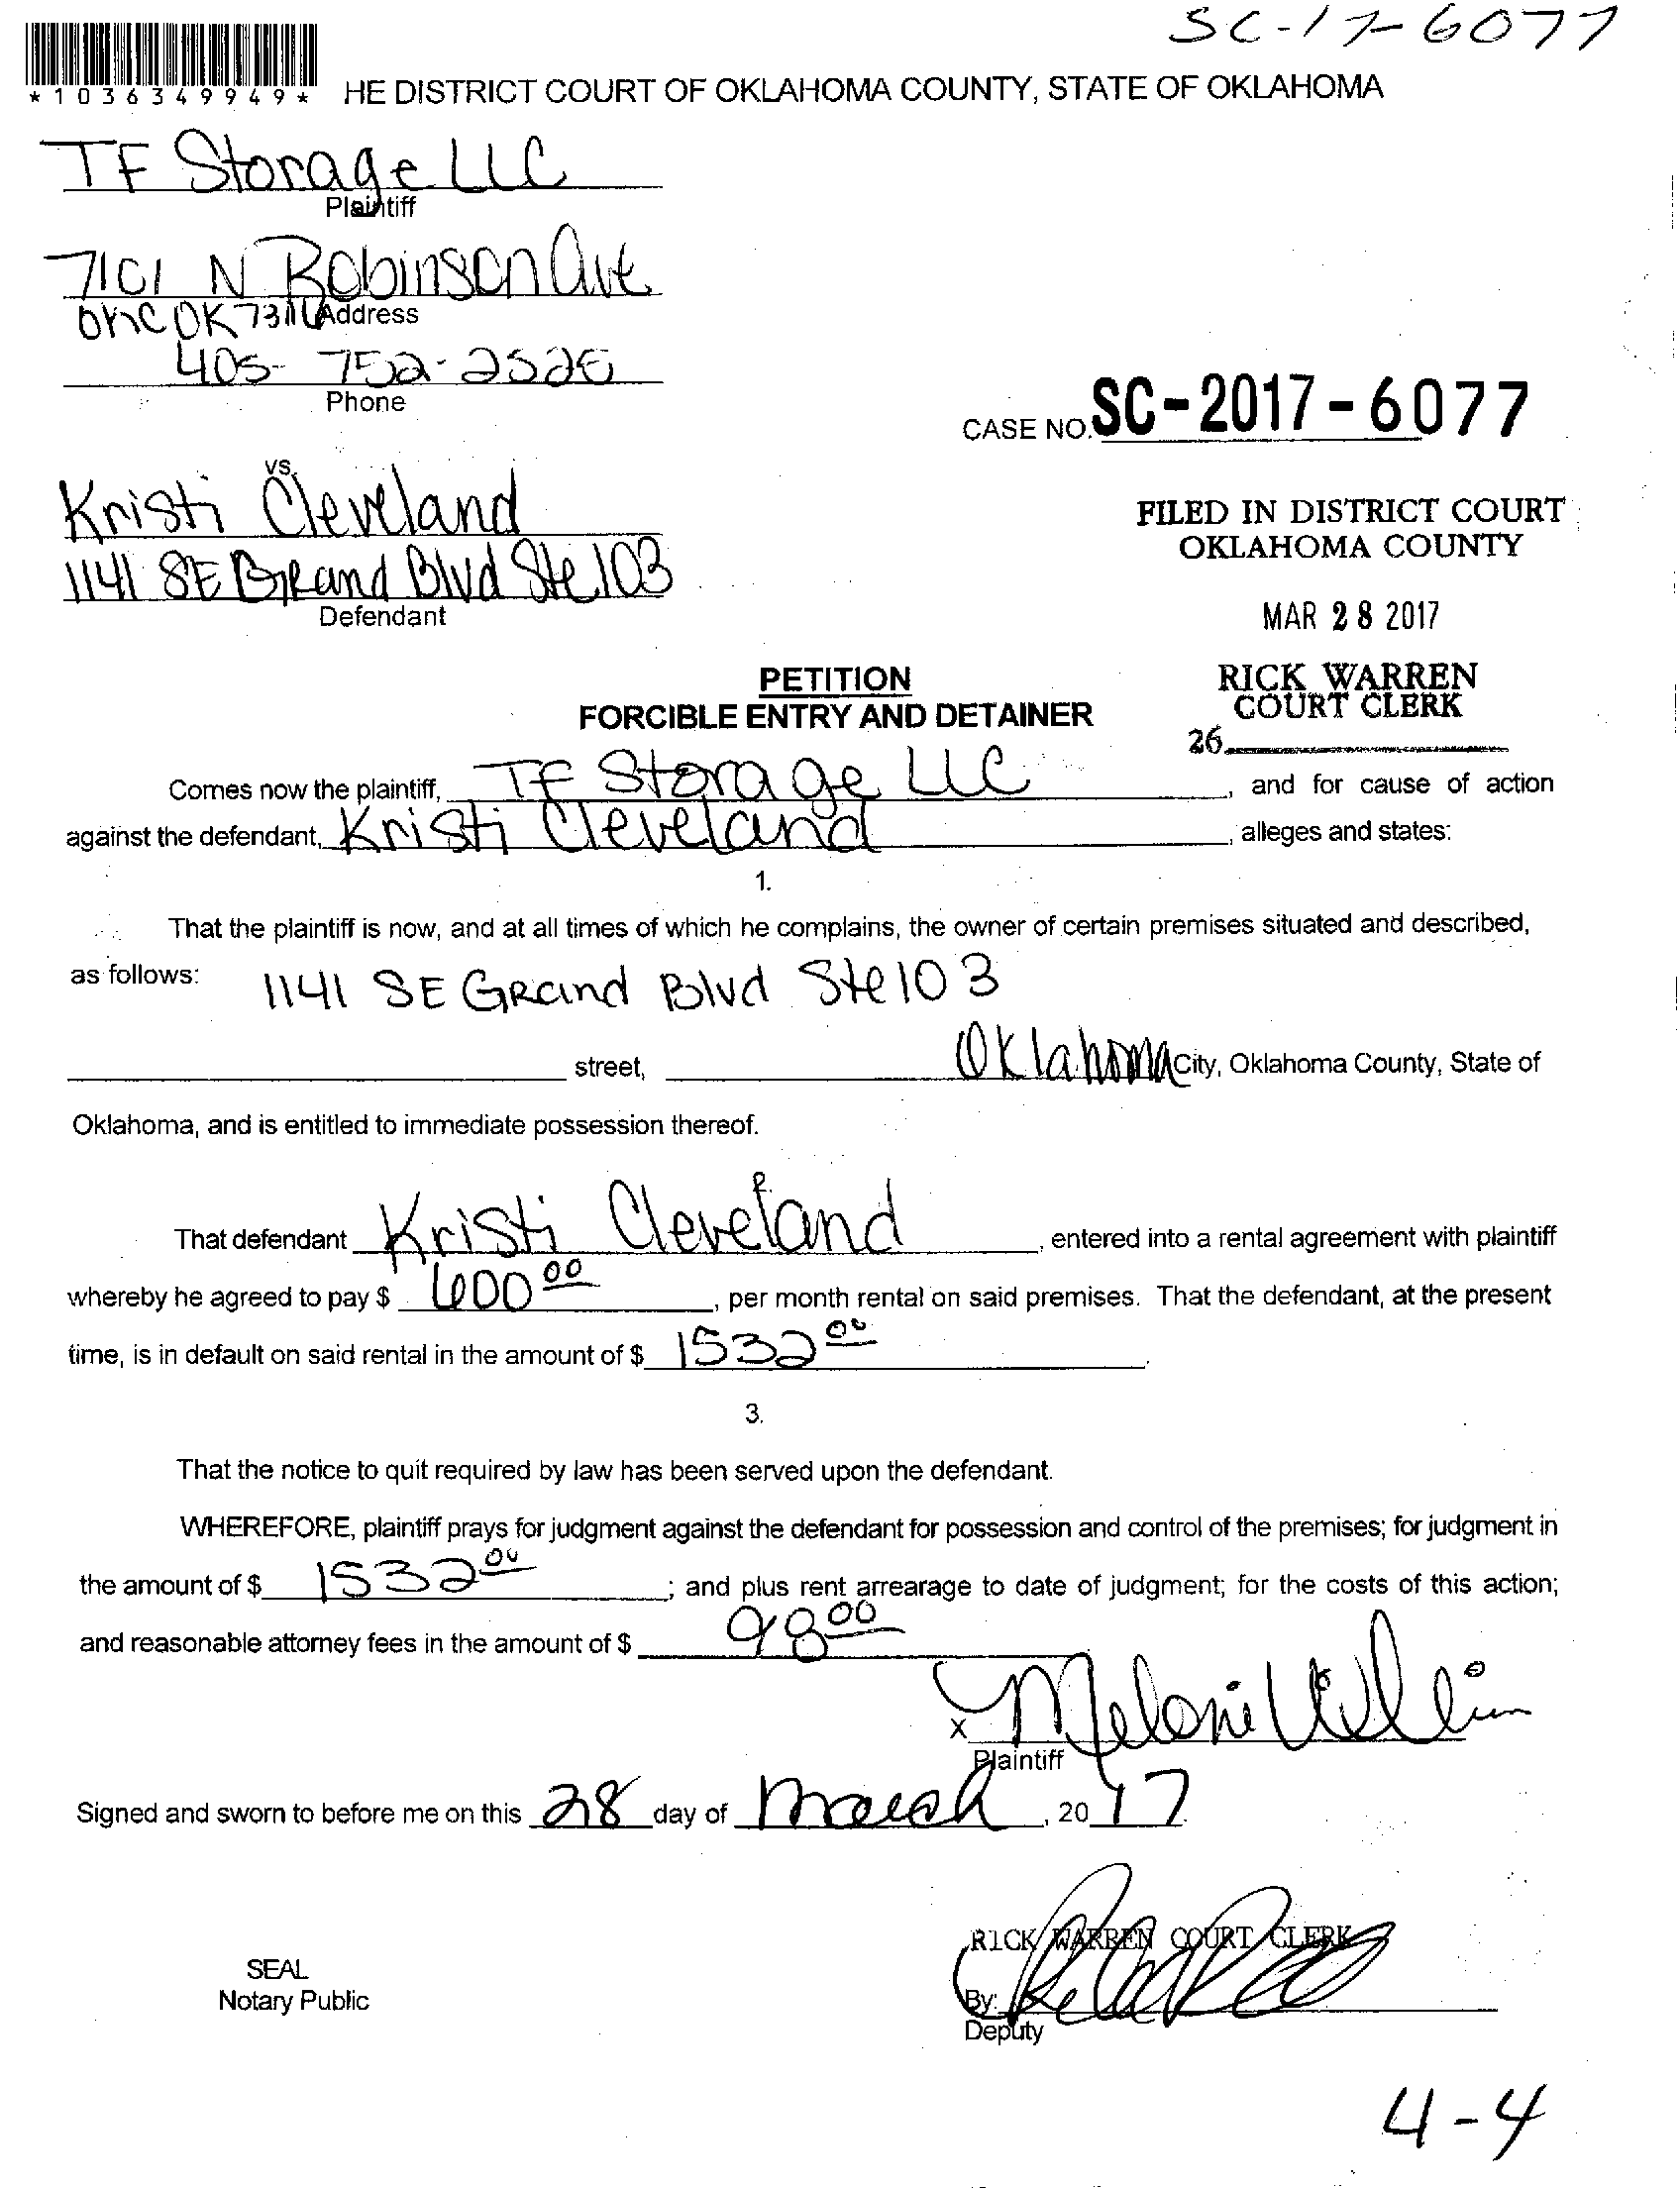 SC-17-6077
*1036349949*
HE DISTRICT COURT OF OKLAHOMA COUNTY, STATE OF OKLAHOMA
TF Storage LLC
Plaintiff
7101 N Robinson Ave
OKC OK 73116 Address
405-752-2525
Phone
CASE NO. SC-2017-6077
vs.
Kristi Cleveland
1141 SE Grand Blvd Ste 103
Defendant
FILED IN DISTRICT COURT
OKLAHOMA COUNTY
MAR 28 2017
RICK WARREN
COURT CLERK
26
PETITION
FORCIBLE ENTRY AND DETAINER
Comes now the plaintiff, TF Storage LLC, and for cause of action
against the defendant, Kristi Cleveland, alleges and states:
1.
That the plaintiff is now, and at all times of which he complains, the owner of certain premises situated and described,
as follows: 1141 SE Grand Blvd Ste 103
street, Oklahoma City, Oklahoma County, State of
Oklahoma, and is entitled to immediate possession thereof.
2.
That defendant Kristi Cleveland, entered into a rental agreement with plaintiff
whereby he agreed to pay $ 600 00, per month rental on said premises. That the defendant, at the present
time, is in default on said rental in the amount of $ 1532 00.
3.
That the notice to quit required by law has been served upon the defendant.
WHEREFORE, plaintiff prays for judgment against the defendant for possession and control of the premises; for judgment in
the amount of $ 1532 00; and plus rent arrearage to date of judgment; for the costs of this action;
and reasonable attorney fees in the amount of $ 98 00
X Meloni
Plaintiff
Signed and sworn to before me on this 28 day of March, 20 17.
RICK WARREN COURT CLERK
SEAL
Notary Public
By:
Deputy
4-4